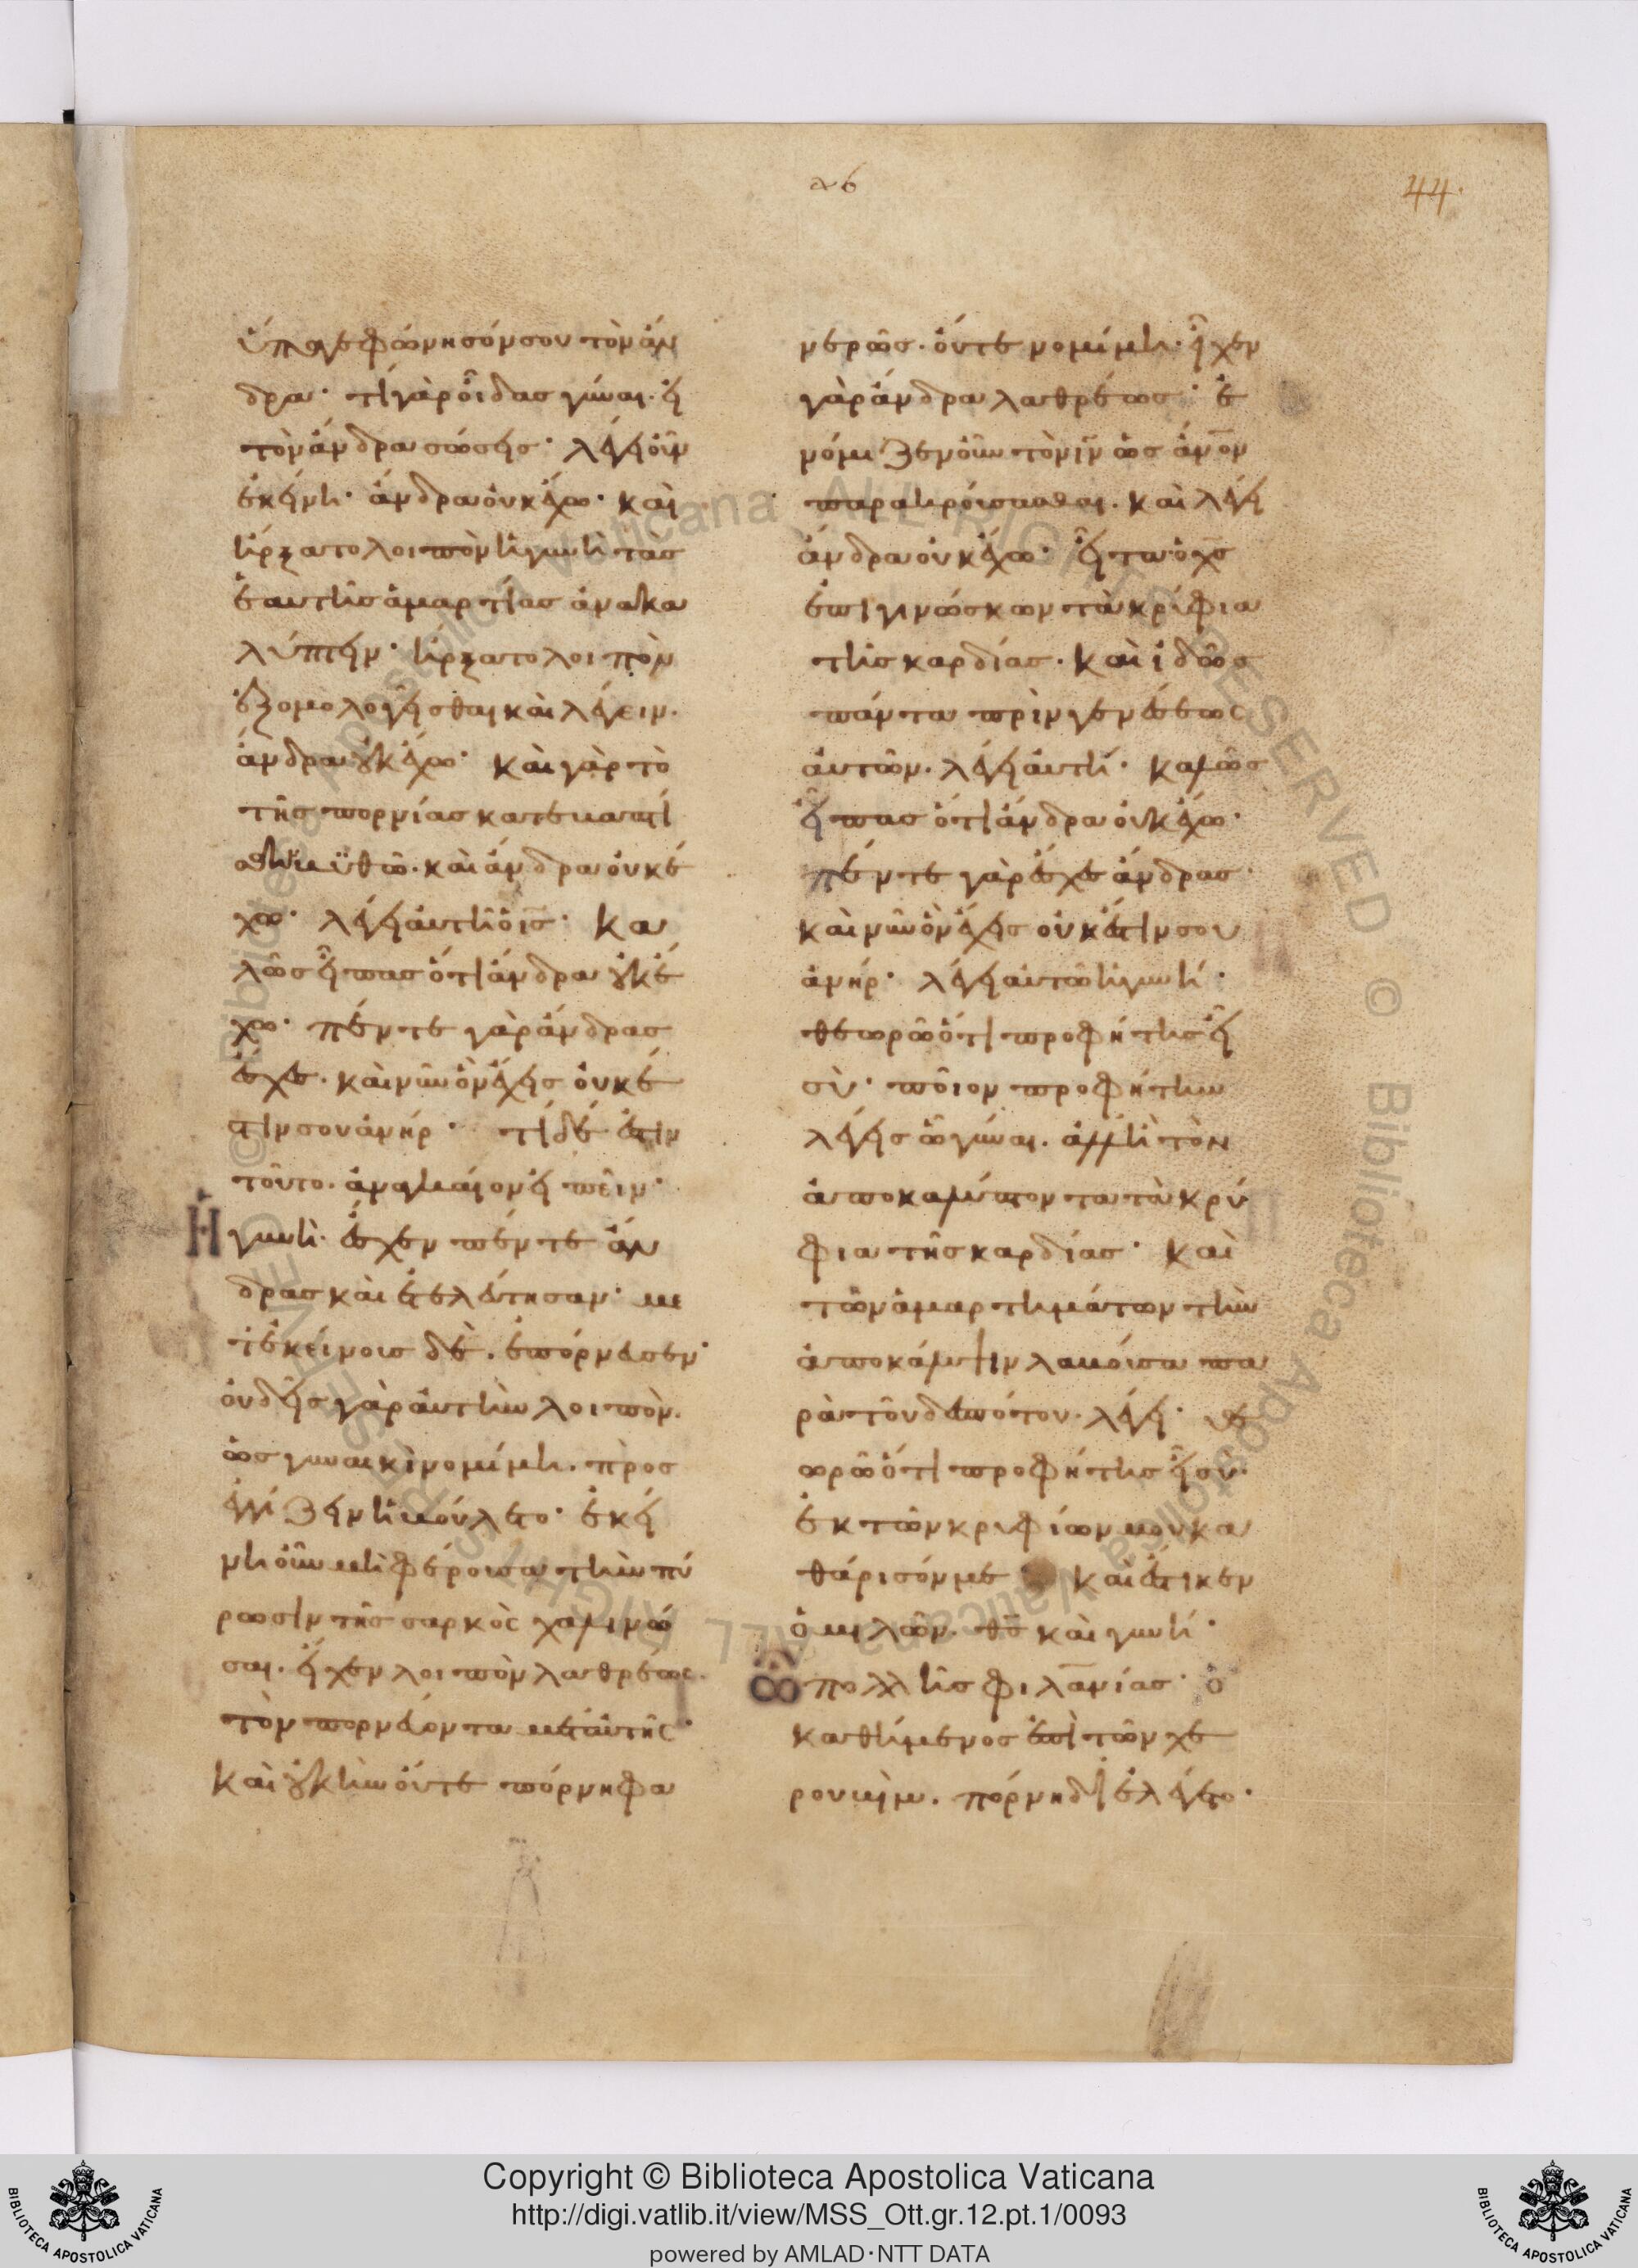 α6
44.
ὕπαγε φώνησόν σου τὸν ἄν
δρα· τί γὰρ οἶδας γύναι· ἠ
τὸν ἄνδρα σώσης· λέγει οὖν
ἐκείνη· ἄνδρα οὐκ ἔχω· καὶ
ἤρξατο λοιπὸν ἡ γυνὴ τὰς
ἑαυτῆς ἁμαρτίας ἀνακα
λύπτειν· ἤρξατο λοιπὸν
ἐξομολογεῖσθαι καὶ λέγειν·
ἄνδρα οὐκ ἔχω· καὶ γὰρ τὸ
τῆς πορνίας
καὶ ἄνδρα οὐκ ἔ
χω· λέγει αὐτῆ ὁ ις· κα
λῶς εἶπας ὅτι ἄνδρα οὐκ ἔ
χω· πέντε γὰρ ἄνδρας
ἔσχες· καὶ νῦν ὃν ἔχεις οὐκ ἔ
στιν σου ἀνήρ· τί δέ ἐστιν
τοῦτο· ἀναγκαῖον εἰπεῖν·
Ἡ γυνὴ· ἔσχεν πέντε ἄν
δρας καὶ ἐτελεύτησαν· με
τ' ἐκείνοις δὲ· ἐπόρνευσεν·
οὐδεὶς γὰρ αὐτὴν λοιπὸν·
ὡς γυναικὶ νομίμη· πρὸς
ἐγγίζειν ἠβούλετο· ἐκεί
νη οὖν μὴ φέρουσα τὴν πύ
ρωσιν τῆς σαρκὸς χαλινῶ
σαι· εἶχεν λοιπὸν λαθρέως·
τὸν πορνεύοντα μετ' αὐτῆς·
καὶ οὐκ ἦν οὔτε πόρνη φα
νερῶς· οὔτε νομίμη· εἶχεν
γὰρ ἄνδρα λαθρέως· ἐ
νόμιζεν οὖν τὸν ιν ὡς ἄνον
παρακρούσασθαι· καὶ λέγει
ἄνδρα οὐκ ἔχω· εἶτα ὁ χς
ἐπιγινώσκων τὰ κρύφια
τῆς καρδίας· καὶ ἰδὼς
πάντα πρὶν γενέσεως
αὐτῶν· λέγει αὐτῆ· καλῶς
εἶπας ὅτι ἄνδρα οὐκ ἔχω·
πέντε γὰρ ἔσχες ἄνδρας·
καὶ νῦν ὃν ἔχεις οὐκ ἔστιν σου
ἀνήρ· λέγει αὐτῶ ἡ γυνή·
θεωρῶ ὅτι προφήτης εἶ
σὺ· ποῖον προφήτην
λέγεις ὦ γύναι· ἀλλ' ἢ τὸν
ἀποκαλύπτοντα τὰ κρύ
φια τῆς καρδίας· καὶ
τῶν ἁμαρτημάτων τὴν
ἀποκάλυψιν λαβοῦσα πα
ρὰ τοῦ δεσπότου· λέγει· θε
ωρῶ ὅτι προφήτης εἶ σὺ·
ἐκ τῶν κρυφίων μου κα
θάρισόν με καὶ ἔστηκεν
ὁμιλῶν· θς καὶ γυνή·
Ὢ πολλῆς φιλανίας· ὁ
καθήμενος ἐπὶ τῶν χε
ρουβὶμ· πόρνη διελέγετο·
Copyright © Biblioteca Apostolica Vaticana
http://digi.vatlib.it/view/MSS_Ott.gr.12.pt.1/0093
powered by AMLAD·NTT DATA
BIBLIOTECA APOSTOLICA VATICANA
BIBLIOTECA APOSTOLICA VATICANA